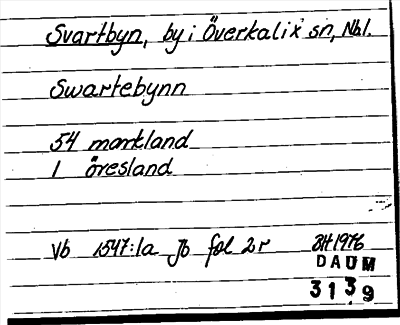 Svartbyn, by i Överkalix sn, Nbl.
Swartebynn
54 markland
1 öresland
Vb 1547:1a Jb fol 2r
BH 1976
DAUM
3139